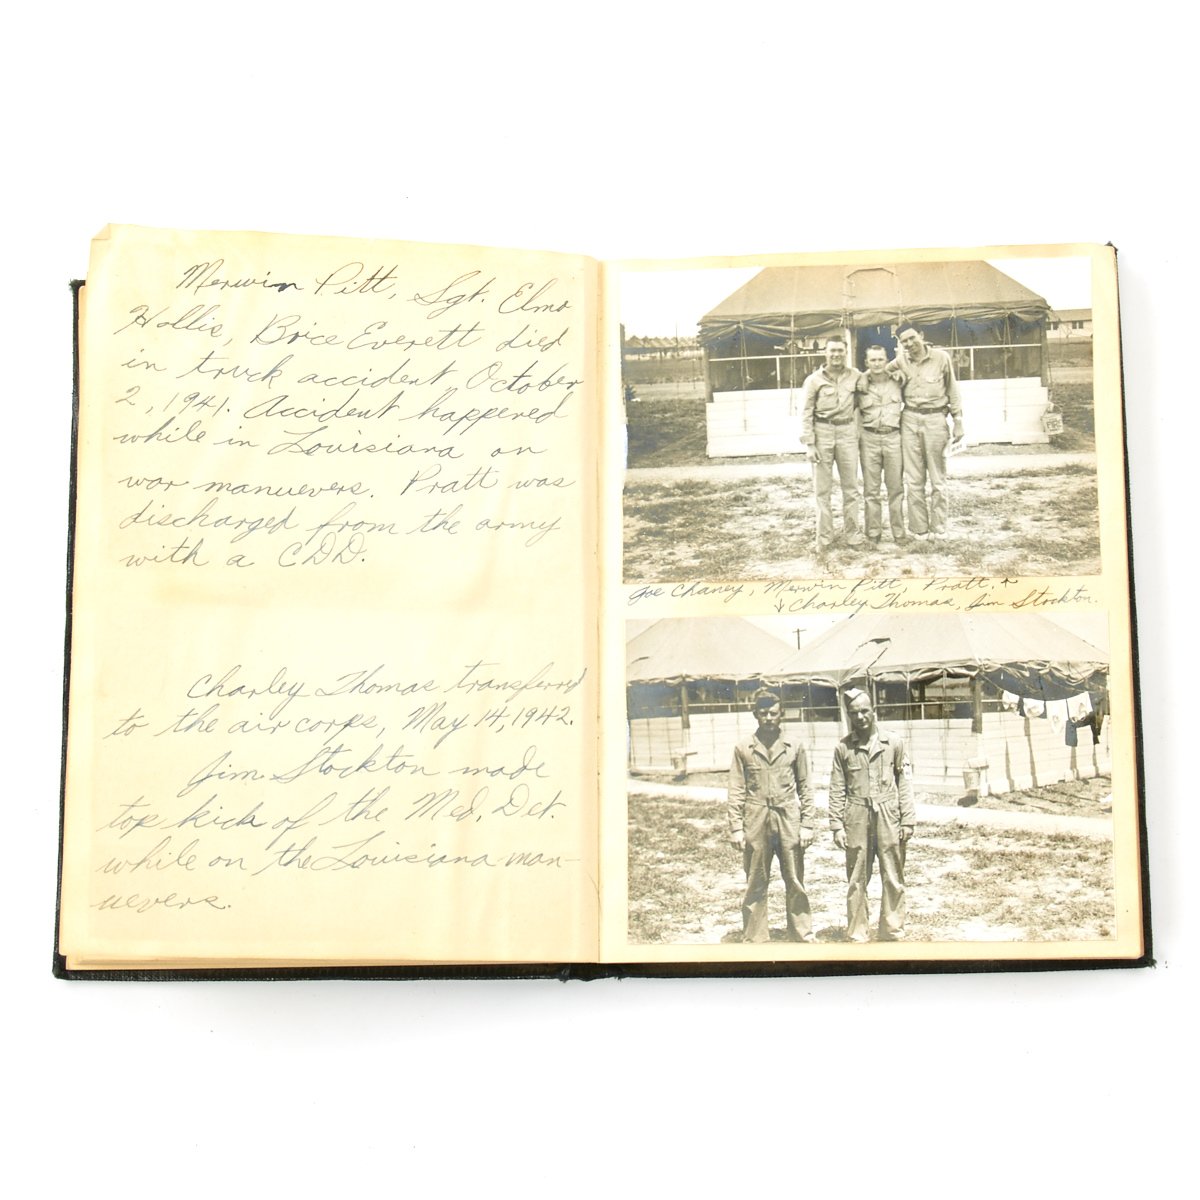 Merwin Pitt, Sgt. Elmo
Hollis, Brice Everett died
in truck accident October
2, 1941. Accident happened
while in Louisiana on
war manuevers. Pratt was
discharged from the army
with a CDD.
Charley Thomas transferred
to the air corps, May 14, 1942.
Jim Stockton made
top kick of the Med. Det.
while on the Louisiana man-
uevers.
Joe Chaney, Merwin Pitt, Pratt. ↑
↓ Charley Thomas, Jim Stockton.